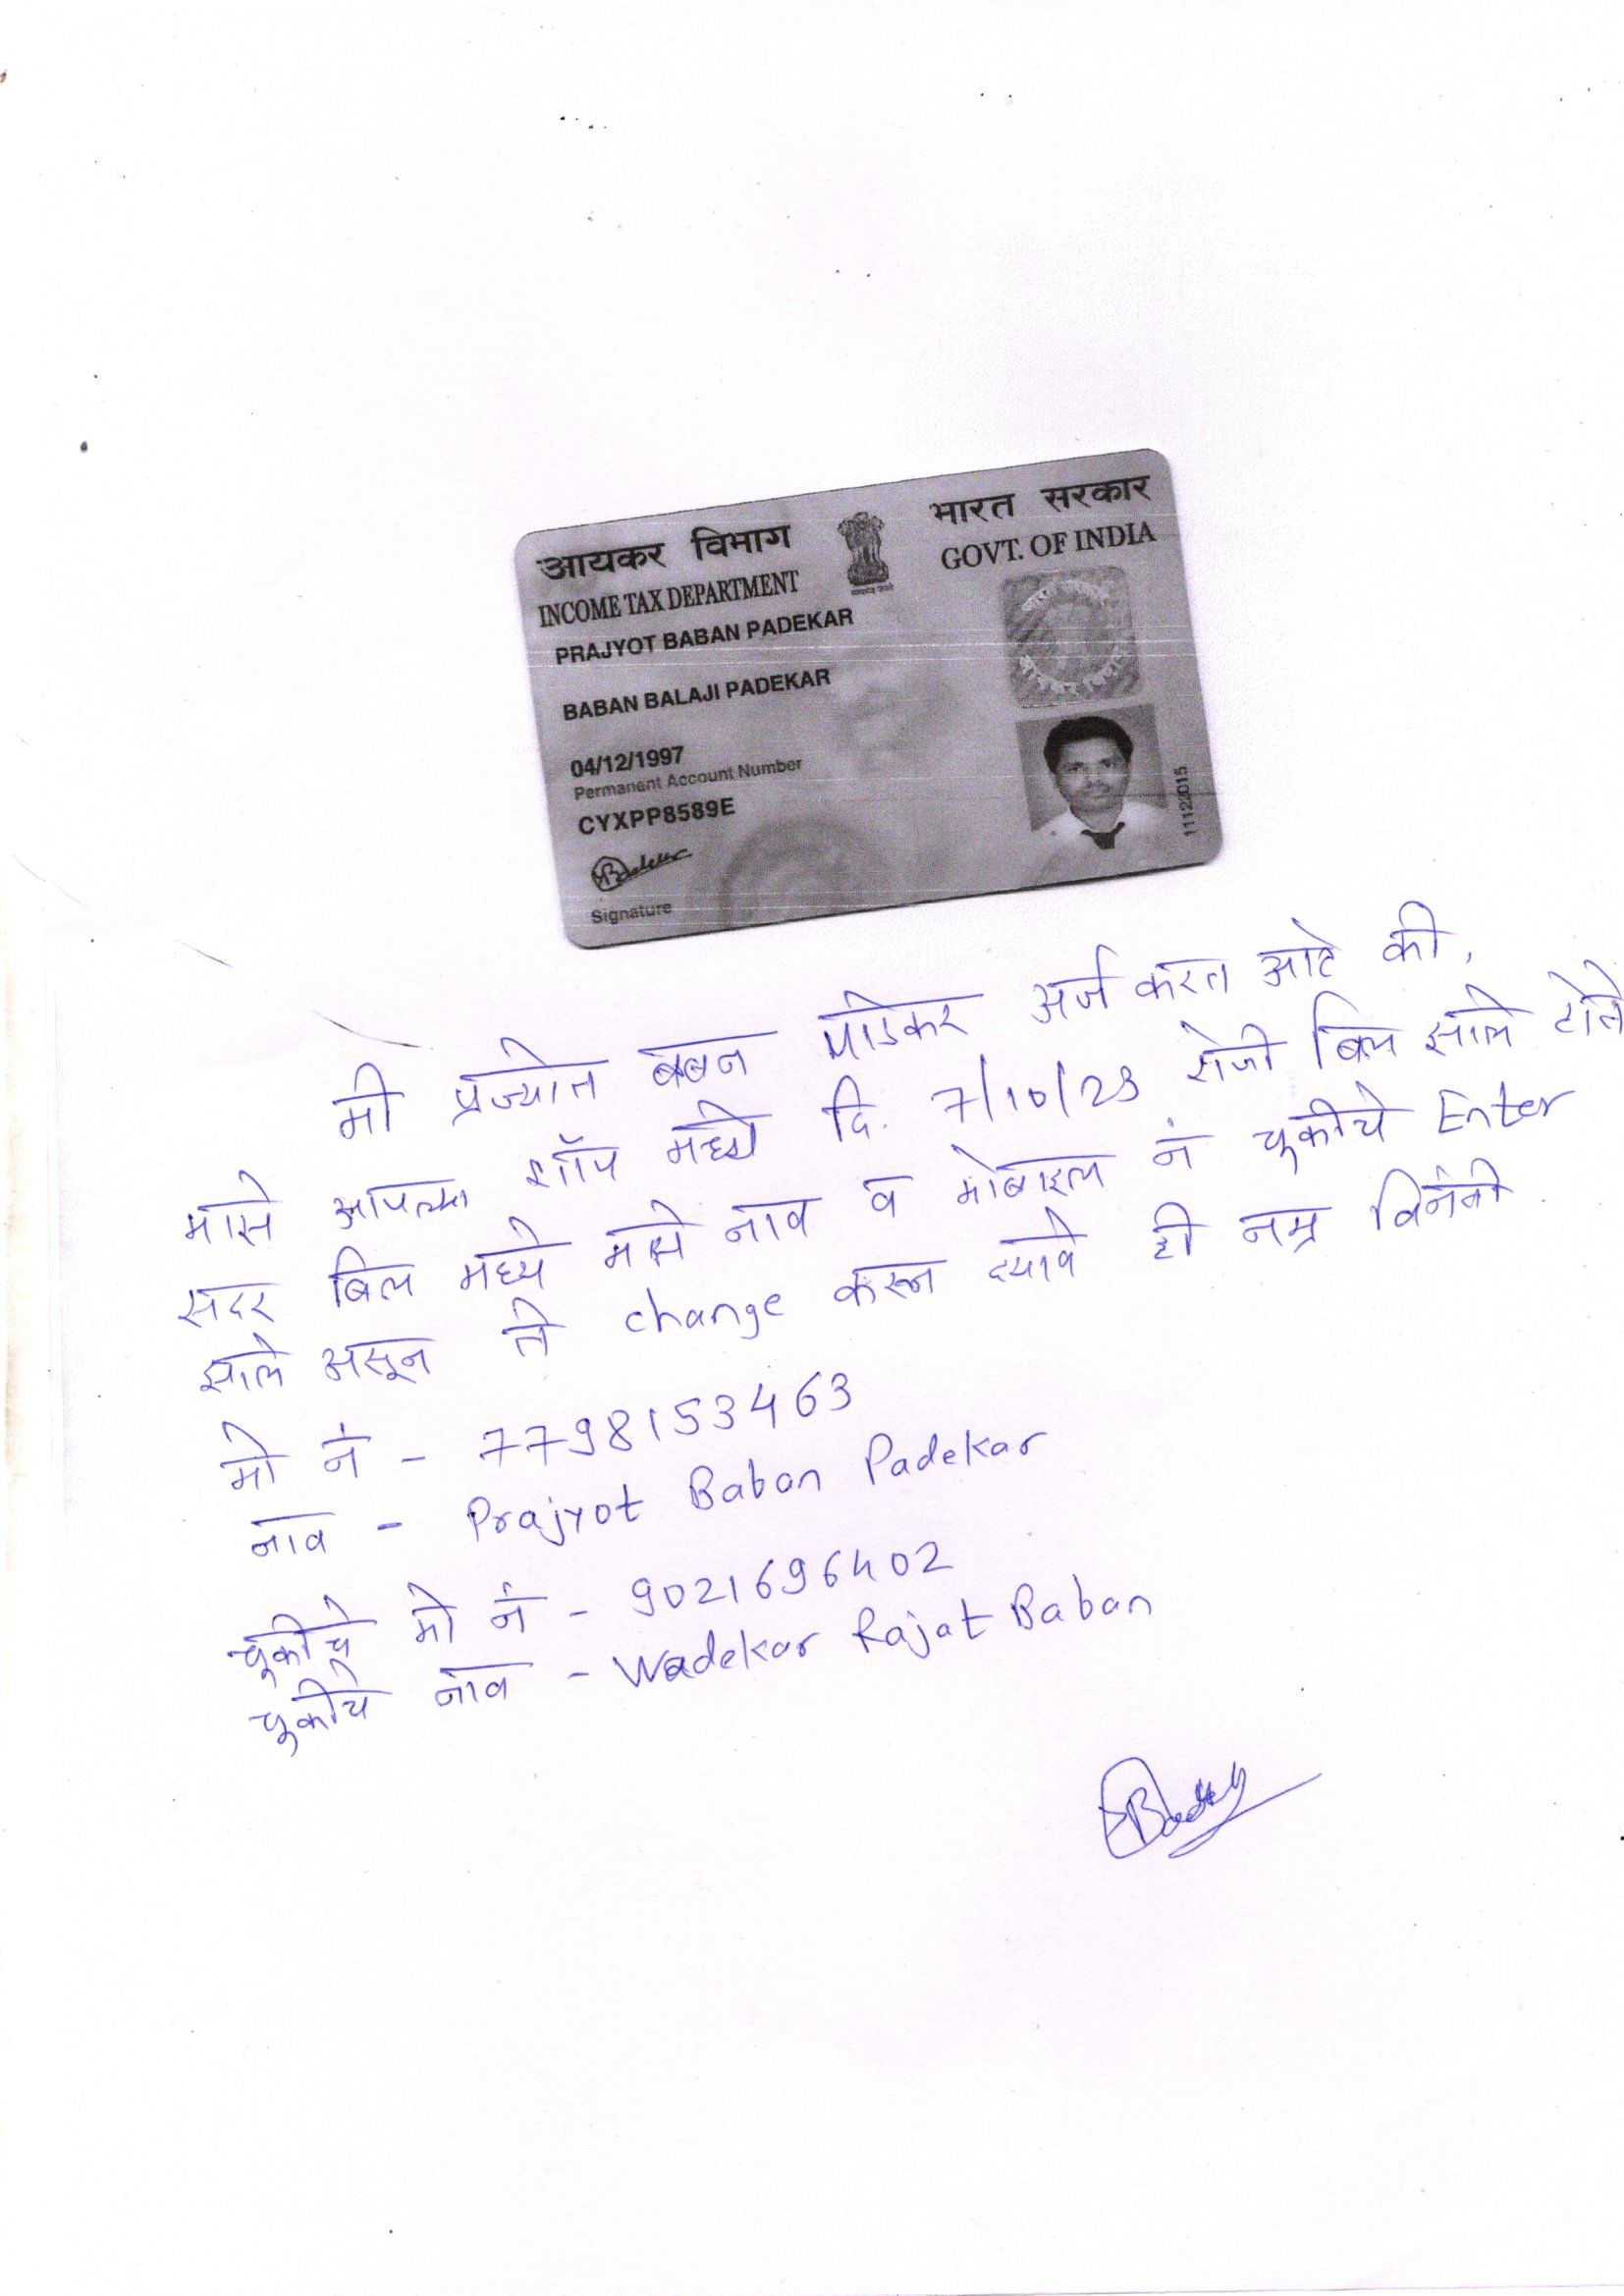 आयकर विभाग
INCOME TAX DEPARTMENT
भारत सरकार
GOVT. OF INDIA
PRAJYOT BABAN PADEKAR
BABAN BALAJI PADEKAR
04/12/1997
Permanent Account Number
CYXPP8589E
Signature
11122015
मी प्रज्योत बबन पाडेकर अर्ज करत आहे की,
माझे आपल्या शॉप मध्ये दि. 7/10/23 रोजी बिल झाले होते
सदर बिल मध्ये माझे नाव व मोबाइल नं चूकीचे Enter
झाले असून ते change करून द्यावे ही नम्र विनंती.
मो नं - 7798153463
नाव - Prajyot Baban Padekar
चूकीचे मो नं - 9021696402
चूकीचे नाव - Wadekar Rajat Baban